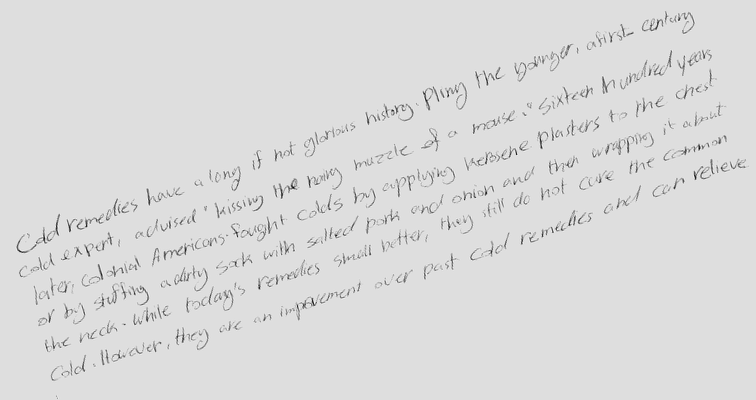 Cold remedies have a long if not glorious history. Pliny the younger, a first century
cold expert, advised "kissing the hairy muzzle of a mouse." Sixteen hundred years
later, colonial Americans fought colds by applying kerosene plasters to the chest
or by stuffing a dirty sock with salted pork and onion and then wrapping it about
the neck. While today's remedies smell better, they still do not cure the common
Cold. However, they are an impovement over past cold remedies and can relieve